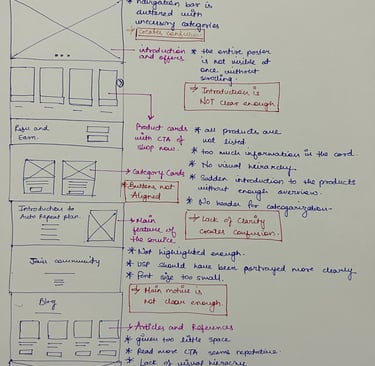 * navigation bar is
cluttered with
unnecessary categories
→ creates confusion
introduction
and offers
* the entire poster
is not visible at
once without
scrolling.
→ Introduction is
NOT clear enough.
Product cards
with CTA of
shop now.
* all products are
not listed
* too much information in the card.
* No visual hierarchy
* Sudden introduction to the products
without enough overview.
* No header for categorization
Refer and
Earn.
Category Cards
* Buttons not
Aligned
→ Lack of Clarity
creates confusion.
Introduction to
Auto Repeat plan.
Main
feature of
the service
* Not highlighted enough.
* USP should have been portrayed more clearly
* Font size too small.
Join community
→ Main motive is
not clear enough.
Blog
Articles and References
* given too little space
* Read more CTA seems repetative.
* Lack of visual hierarchy